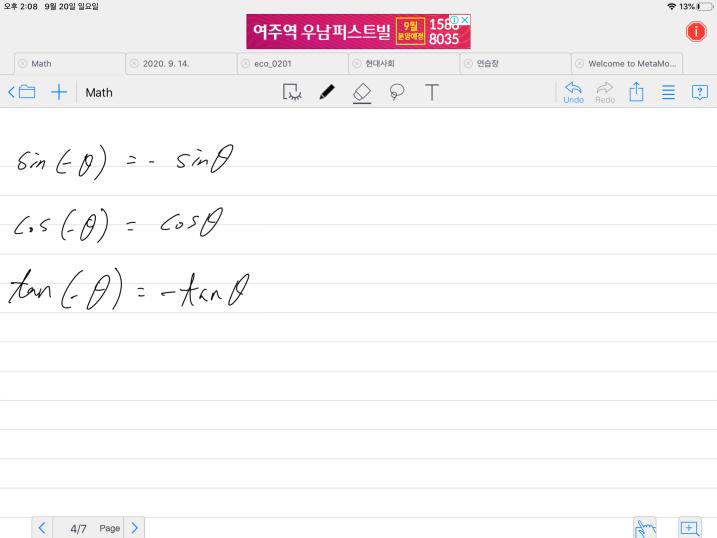 오후 2:08 9월 20일 일요일 13%
여주역 우남퍼스트빌 9월 분양예정 1588 8035
Math 2020. 9. 14. eco_0201 현대사회 연습장 Welcome to MetaMo...
Math T Undo Redo
sin(-θ) = - sinθ
cos(-θ) = cosθ
tan(-θ) = -tanθ
4/7 Page